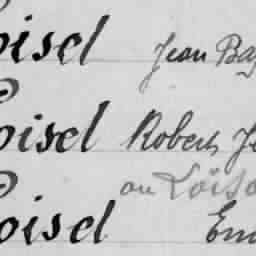 oisel Jean Ba
oisel Robert J
ou Loiso
oisel Em